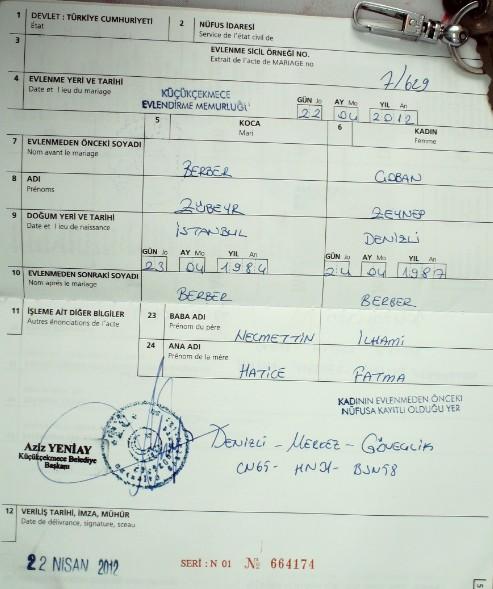 1 DEVLET : TÜRKİYE CUMHURİYETİ
Etat
2 NÜFUS İDARESİ
Service de l'état civil de
3 EVLENME SİCİL ÖRNEĞİ NO.
Extrait de l'acte de MARIAGE no
7/629
4 EVLENME YERİ VE TARİHİ
Date et lieu du mariage
KÜÇÜKÇEKMECE
EVLENDİRME MEMURLUĞU
GÜN Jo AY Mo YIL An
22 04 2012
5 KOCA
Mari
6 KADIN
Femme
7 EVLENMEDEN ÖNCEKİ SOYADI
Nom avant le mariage
BERBER ÇOBAN
8 ADI
Prénoms
ZÜBEYR ZEYNEP
9 DOĞUM YERİ VE TARİHİ
Date et lieu de naissance
İSTANBUL DENİZLİ
GÜN Jo AY Mo YIL An GÜN Jo AY Mo YIL An
23 04 1984 24 04 1987
10 EVLENMEDEN SONRAKİ SOYADI
Nom après le mariage
BERBER BERBER
11 İŞLEME AİT DİĞER BİLGİLER
Autres énonciations de l'acte
23 BABA ADI
Prénom du père
NECMETTİN İLHAMİ
24 ANA ADI
Prénom de la mère
HATİCE FATMA
KADININ EVLENMEDEN ÖNCEKİ
NÜFUSA KAYITLI OLDUĞU YER
DENİZLİ - MERKEZ -
Aziz YENİAY
Küçükçekmece Belediye
Başkanı
12 VERİLİŞ TARİHİ, İMZA, MÜHÜR
Date de délivrance, signature, sceau
22 NISAN 2012
SERİ : N 01 № 664174
5